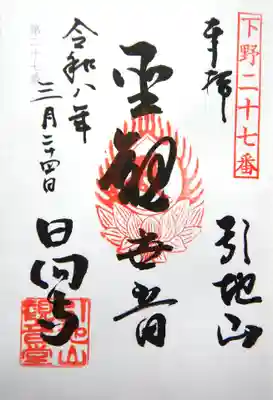 下野二十七番
奉拝
引地山
聖観世音
令和八年
三月二十四日
日向寺
第二十七番
引地山
観音堂